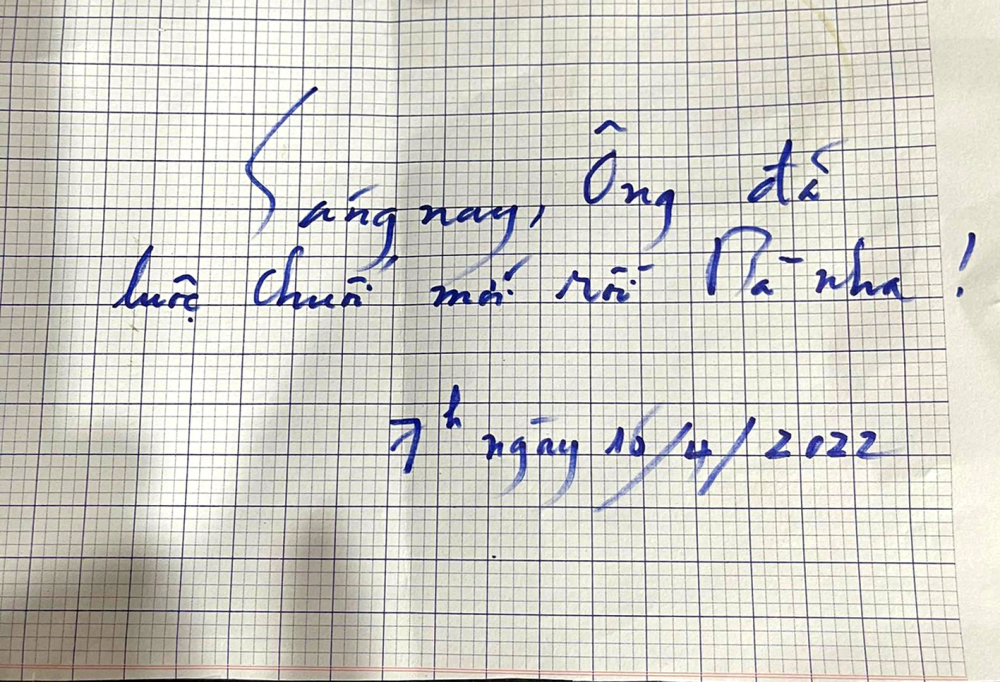 Sáng nay, Ông đã
luộc chuối mới rồi Bà nha!
7h ngày 16/4/2022